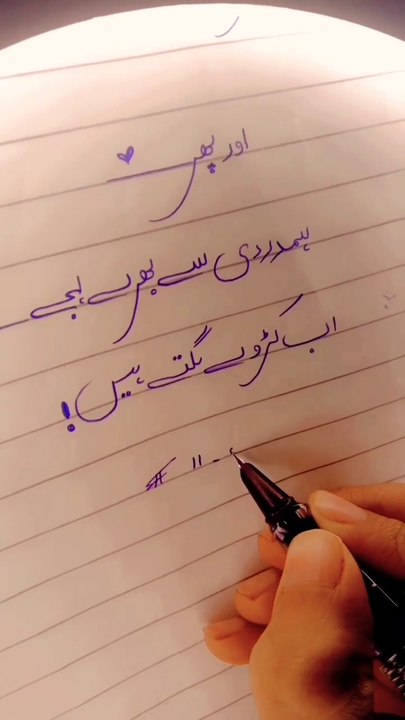 اور پھر
ہمدردی سے بھرے لہجے
اب کڑوے لگتے ہیں!